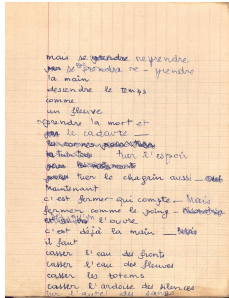 mais se prendre reprendre
se prendre re-prendre
la main
descendre le temps
comme
un fleuve
prendre la mort et
le cadavre
tuer l'espoir
tuer le chagrin aussi
Maintenant
c'est fermer qui compte - Mais
fermer comme le poing
l'ouvre
c'est déjà la main
il faut
casser l'eau des fronts
casser l'eau des fleuves
casser les totems
casser l'ardoise des silences
sur l'autel des sangs